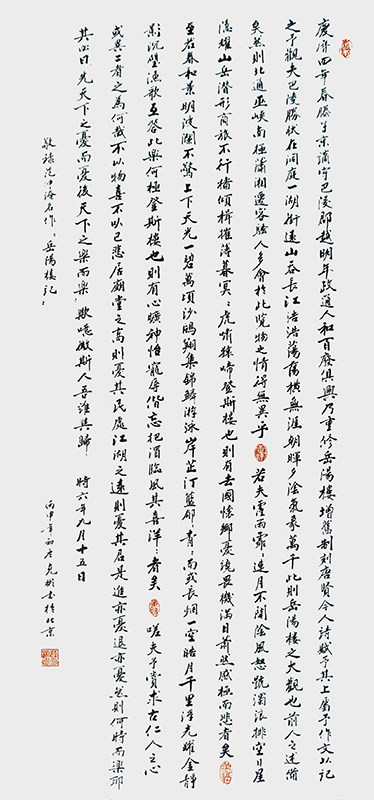 慶曆四年春滕子京謫守巴陵郡越明年政通人和百廢俱興乃重修岳陽樓增舊制刻唐賢今人詩賦于其上屬予作文以記
之予觀夫巴陵勝狀在洞庭一湖銜遠山吞長江浩浩蕩蕩橫無涯朝暉夕陰氣象萬千此則岳陽樓之大觀也前人之述備
矣然則北通巫峽南極瀟湘遷客騷人多會於此覽物之情得無異乎 若夫霪雨霏霏連月不開陰風怒號濁浪排空日星
隱耀山岳潛形商旅不行檣傾楫摧薄暮冥冥虎嘯猿啼登斯樓也則有去國懷鄉憂讒畏譏滿目蕭然感極而悲者矣
至若春和景明波瀾不驚上下天光一碧萬頃沙鷗翔集錦鱗游泳岸芷汀蘭郁郁青青而或長烟一空皓月千里浮光耀金靜
影沉璧漁歌互答此樂何極登斯樓也則有心曠神怡寵辱偕忘把酒臨風其喜洋洋者矣 嗟夫予嘗求古仁人之心
或異二者之為何哉不以物喜不以己悲居廟堂之高則憂其民處江湖之遠則憂其君是進亦憂退亦憂然則何時而樂耶
其必曰先天下之憂而憂後天下之樂而樂歟噫微斯人吾誰與歸 時六年九月十五日
敬錄范仲淹名作岳陽樓記
丙申年初 書於北京